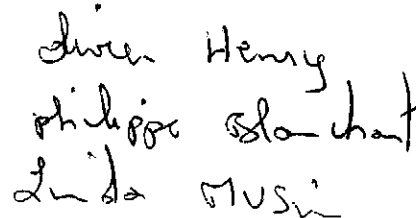 Olivier Henry
philippe Blanchart
Linda MUSin